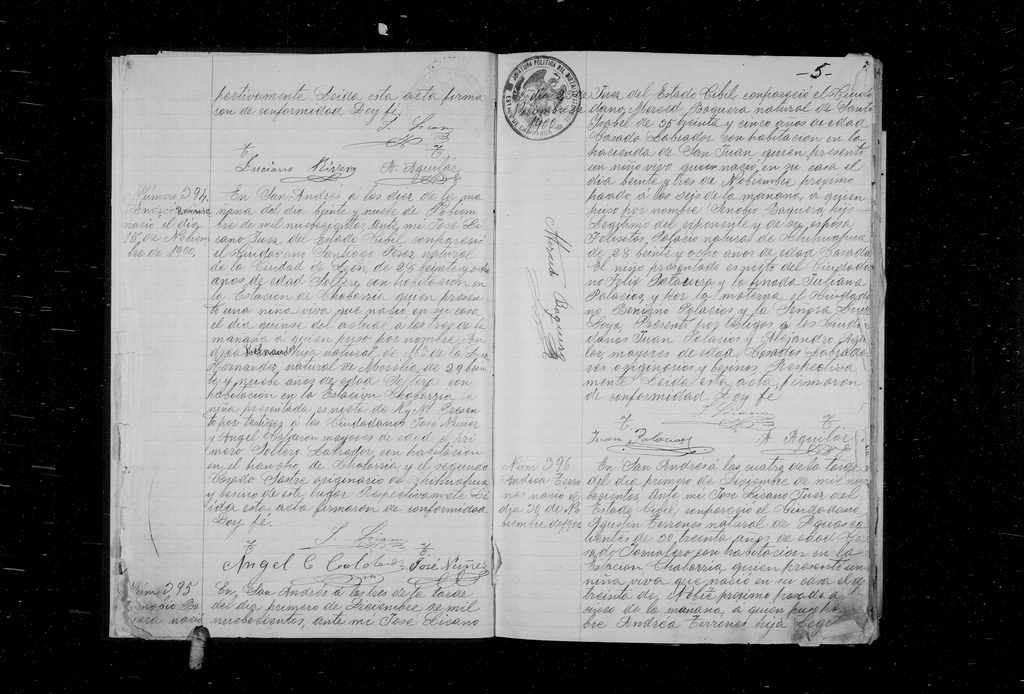 pectivamente Leida esta acta firma
ron de conformidad Doy fé.
J. Lisano
Luciano Rivera A. Aguilar
Número 394.
nacio el dia
15 de Nobiem
bre de 1900.
En San Andrés á las diez de la ma
ñana del dia beinte y nuebe de Nobiem
bre de mil nuebesientos, Ante mi José Li
sano Juez del Estado Cibil comparesió
el Ciudadano Santiago Perez natural
de la Ciudad de León, de 28 beinte y ocho
años de edad Soltero con habitacion en
la Estacion de Chabarria quien presen
to una niña viva que nació en su casa
el dia quinse del actual á las tres de la
mañana á quien puso por nombre
hija natural de
Hernandes, natural de Morelia de 29 bein
te y nuebe años de edad Soltera con
habitacion en la Estacion Chabarria la
niña presentada es nieta de Presen
to por testigos á los Ciudadanos José Nuñez
y Angel Calderon mayores de edad el pri
mero Soltero Labrador con habitacion
en el rancho de Chabarria y el segundo
Casado Sastre originario de Chihuahua
y besino de este lugar Respectivamente Le
ida esta acta firmaron de conformidad
Doy fé.
J. Lisano
Angel C. Calderon José Nuñez
Núm 395
Cenobio Ba
quera nació
En San Andrés á las tres de la tarde
del dia primero de Disiembre de mil
nuebesientos, ante mi José Lisano
-5-
JEFATURA POLITICA DEL
el dia 23 de
Nobiembre de
1900.
Merced Baquera
Juez del Estado Cibil comparesió el Ciuda
dano Merced Baquera natural de Santa
Ysabel de 25 beinte y cinco años de edad
Casado Labrador con habitacion en la
hacienda de San Juan quien presentó
un niño vivo quien nació en su casa el
dia beinte y tres de Nobiembre proximo
pasado á las seis de la mañana, a quien
puso por nombre Senobio Baquera hijo
Legítimo del esponente y de su esposa
Felesitas Palacio natural de Chihuahua
de 28 beinte y ocho años de edad Casada
El niño presentado es nieto del Ciudada
no Felix Baquera y la finada Juliana
Palacios y por la materna el Ciudada
no Benigno Palacios y la Señora Luisa
Loya, Presentó por testigos á los Ciuda
danos Juan Palacios y Alejandro Agui
lar mayores de edad Casados Labrado
res originarios y besinos Respectiva
mente Leida esta acta, firmaron
de conformidad Doy fé
J. Lisano
Juan Palacios A. Aguilar
Núm 396
Andrea Terro
nes nació el
dia 30 de No
biembre de 1900
En San Andrés á las cuatro de la tarde
del dia primero de Disiembre de mil nue
besientos Ante mi José Lisano Juez del
Estado Cibil, comparesió el Ciudadano
Agustin Terrones natural de Aguasca
lientes de 30 treinta años de edad Ca
sado Jornalero con habitacion en la
Estacion Chabarria quien presentó una
niña viva que nació en su casa el dia
treinta de Nobre proximo pasado á
las onse de la mañana á quien puso nom
bre Andrea Terrones hija Legit